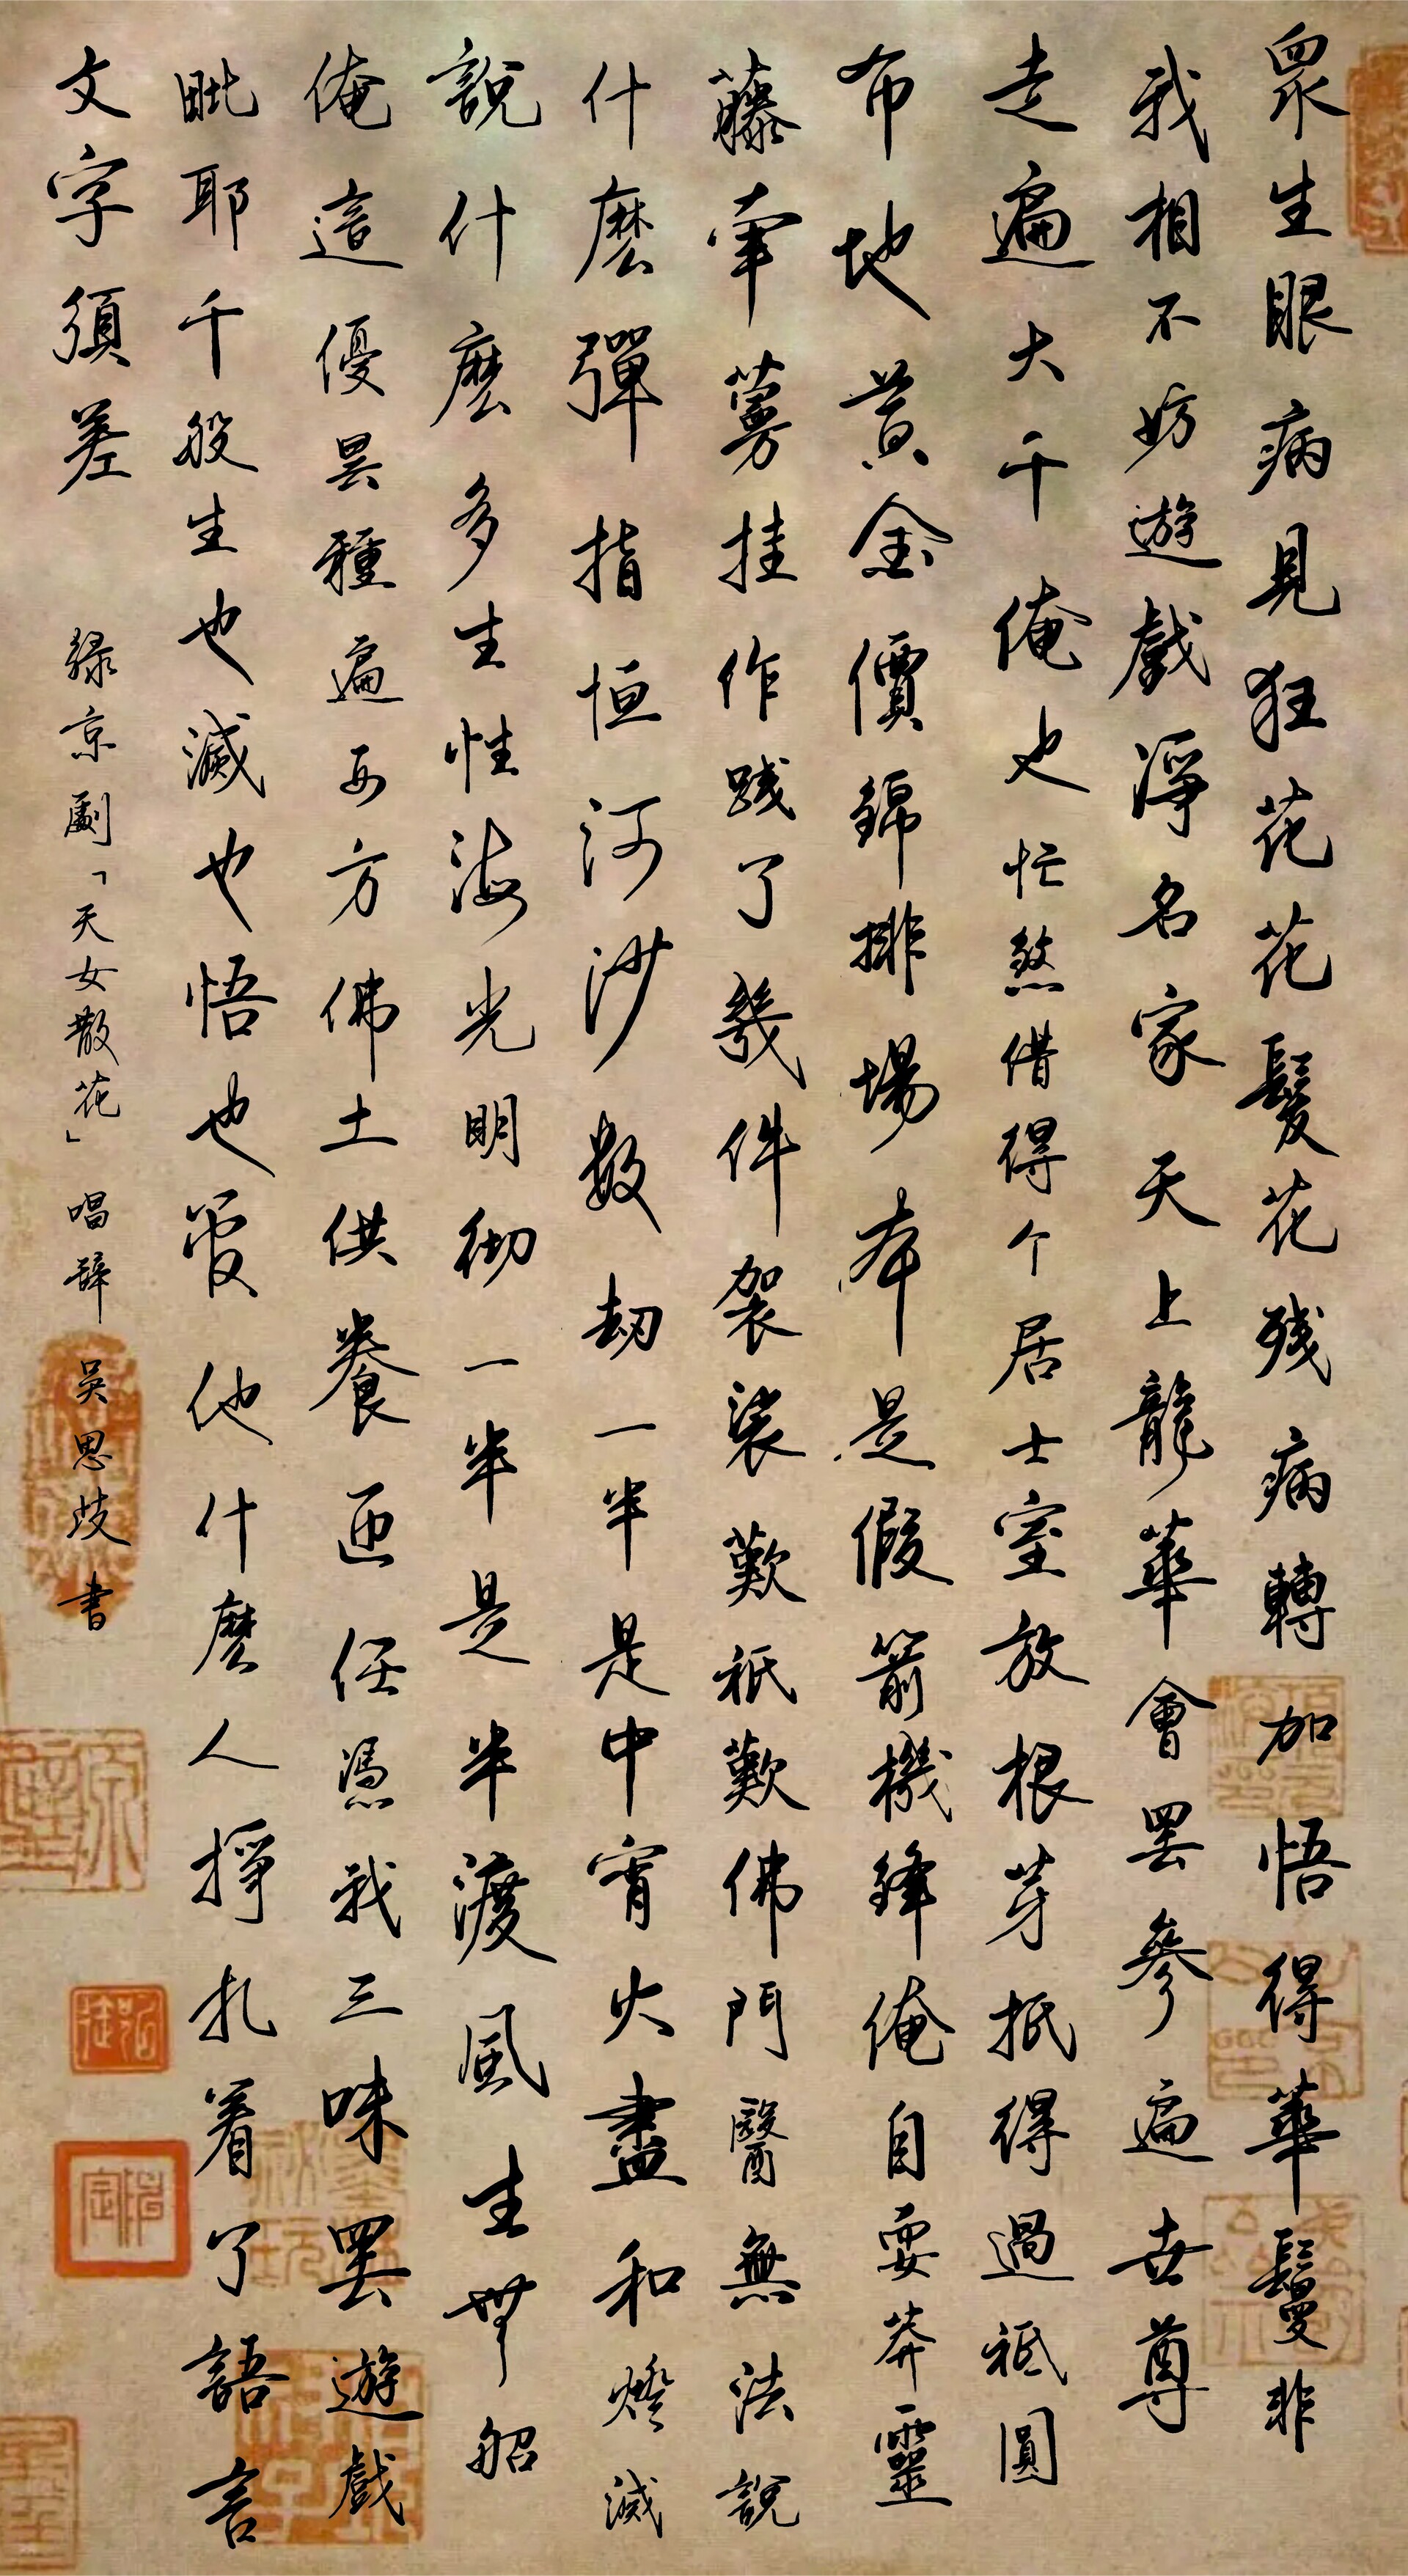 眾生眼病見狂花花鬘花殘病轉加悟得華鬘非
我相不妨遊戲淨名家天上龍華會罷參遍世尊
走遍大千俺也忙煞借得个居士室放根芽抵得過祇圓
布地黃金價錦排場本是假箭機鋒俺自耍莽靈
藤牽蔓挂作踐了幾件袈裟歎祇歎佛門醫無法說
什麼彈指恒河沙數劫一半是中宵火盡和燈滅
說什麼多生性海光明彻一半是半渡風生無船
俺這優曇種遍西方佛土供養匝任憑我三昧罢遊戲
毗耶千般生也滅也悟也管他什麼人掙扎着了語言
文字須差
錄京劇「天女散花」唱辭 吳思歧書